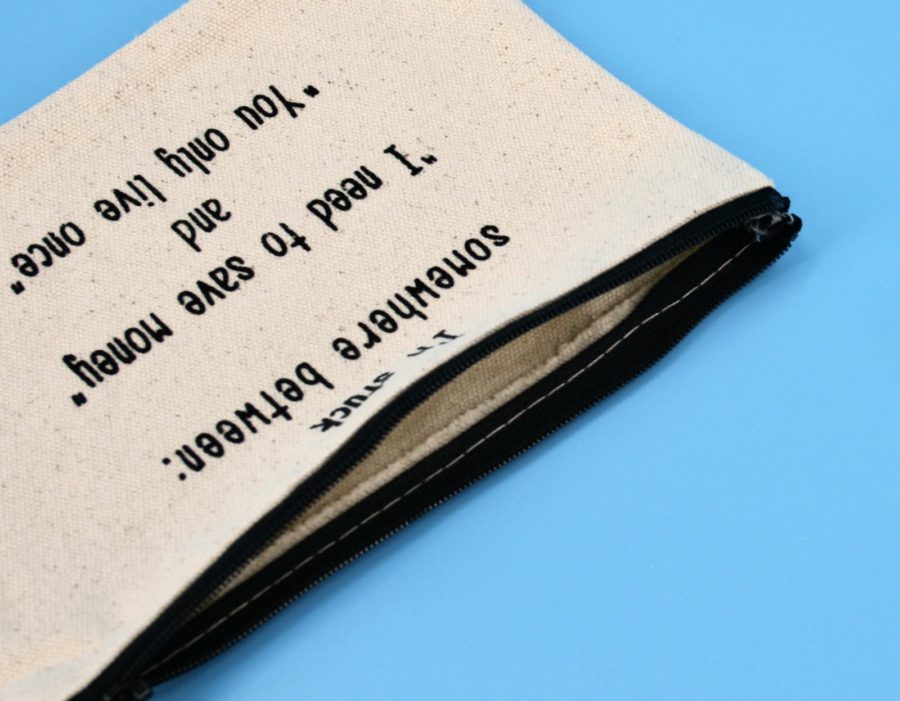 I'm stuck
somewhere between:
"I need to save money"
and
"You only live once"